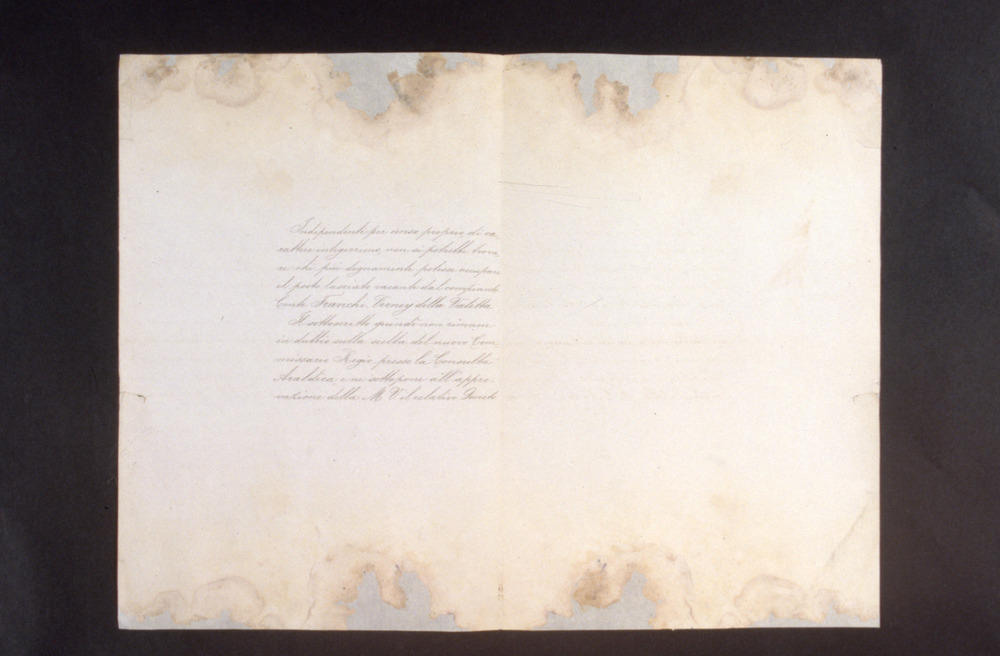 Indipendente per censo proprio, di ca
rattere integerrimo, non si potrebbe trova
re chi più degnamente potesse occupare
il posto lasciato vacante dal compianto
Conte Franchi Verney della Valetta.
Il sottoscritto quindi non rimane
in dubbio sulla scelta del nuovo Com
missario Regio presso la Consulta
Araldica e ne sottopone all'appro
vazione della M. V. il relativo Decreto